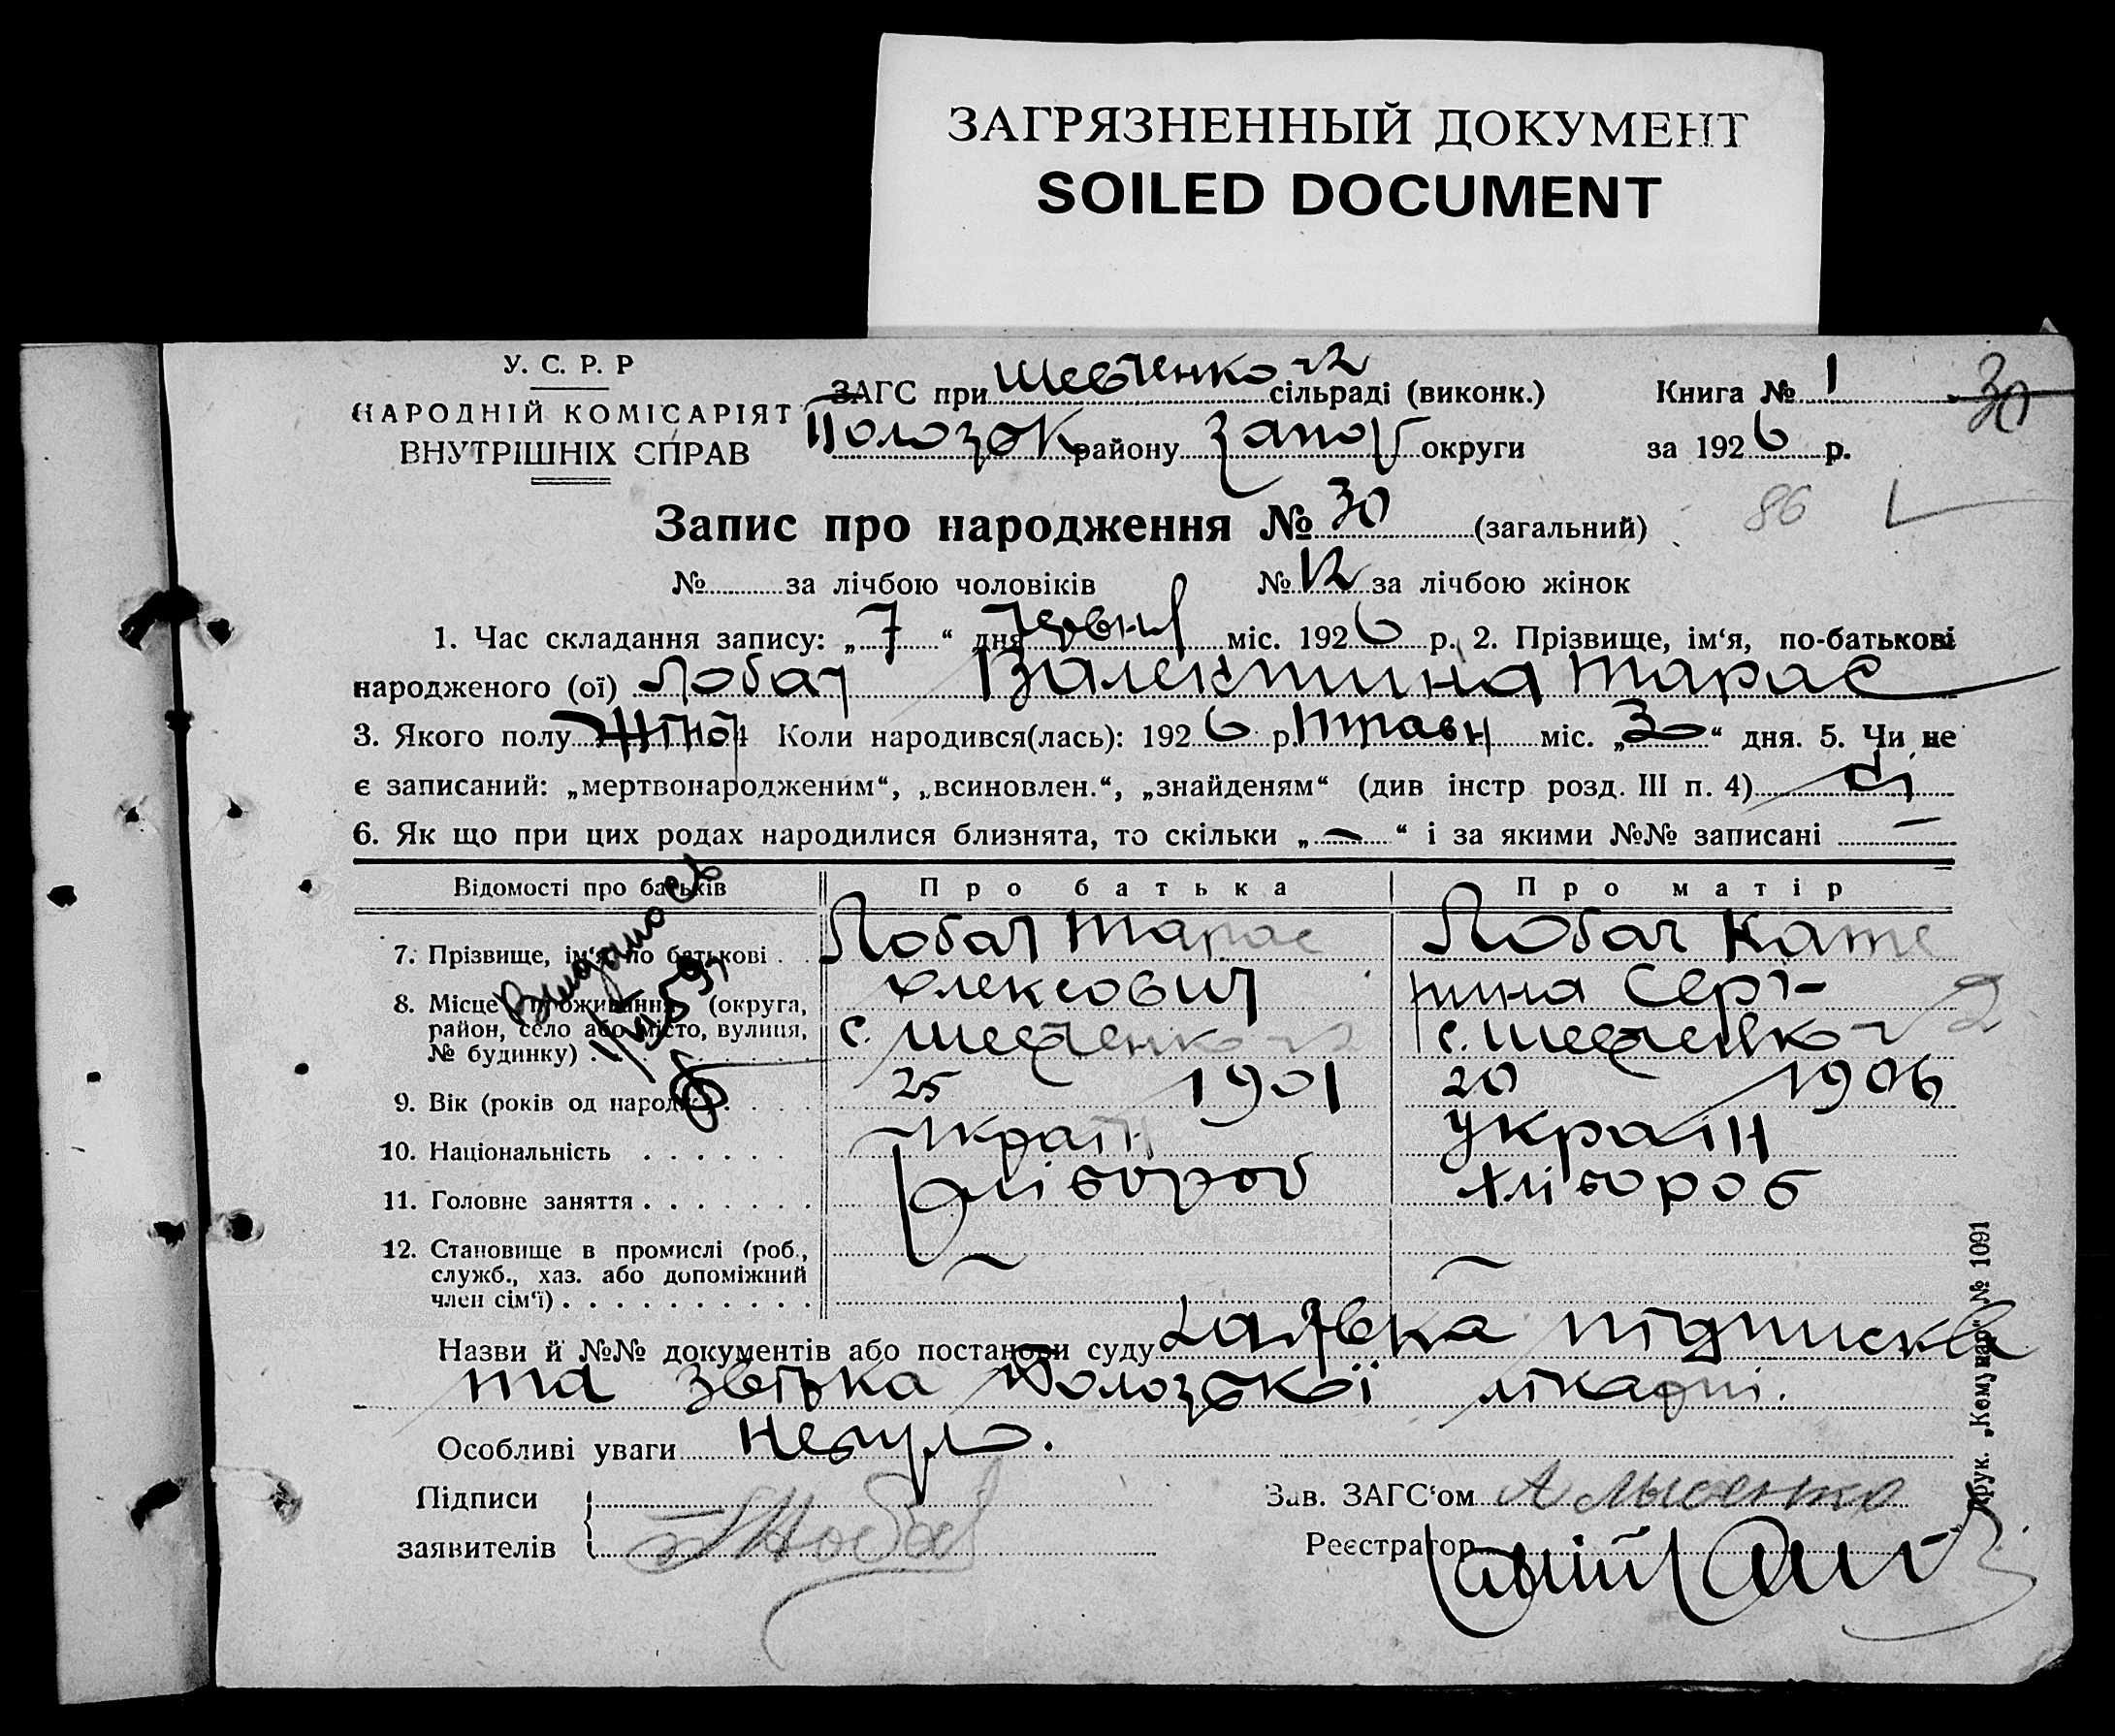 ЗАГРЯЗНЕННЫЙ ДОКУМЕНТ
SOILED DOCUMENT
У. С. Р. Р
НАРОДНІЙ КОМІСАРІЯТ
ВНУТРІШНІХ СПРАВ
ЗАГС при Шевченко сільраді (виконк.)
Полозьк району Запор округи
Книга № 1
30
за 1926 р.
86
Запис про народження № 30 (загальний)
№ за лічбою чоловіків № 12 за лічбою жінок
1. Час складання запису: „7“ дня Червн міс. 1926 р. 2. Прізвище, ім‘я, по-батькові
народженого (ої) Лобач Валентина Тарас
3. Якого полу жіноч 4 Коли народився(лась): 1926 р. травн міс. „3“ дня. 5. Чи не
є записаний: „мертвонародженим“, „всиновлен.“, „знайденям“ (див інстр розд. III п. 4) ні
6. Як що при цих родах народилися близнята, то скільки „—“ і за якими №№ записані —
Відомості про батьків Про батька Про матір
7. Прізвище, ім‘я, по батькові . . Лобач Тарас Лобач Кате
Олексович рина Сергі-
8. Місце проживання (округа,
район, село або місто, вулиця,
№ будинку) . с. Шевченко с. Шевченко
9. Вік (років од народж.) . 25 1901 20 1906
10. Національність . . . . . . Україн Україн
11. Головне заняття . . . . . . . Хлібороб Хлібороб
12. Становище в промислі (роб.,
служб., хаз. або допоміжний
член сім‘ї) . . . . . . . . . .
Назви й №№ документів або постанови суду Заявка підписка
та звістка Полозької лікарні.
Особливі уваги Небуло.
Підписи
заявителів Т Лобач
Зав. ЗАГС‘ом А Лысенко
Реєстратор
Друк. „Комунар“ № 1091